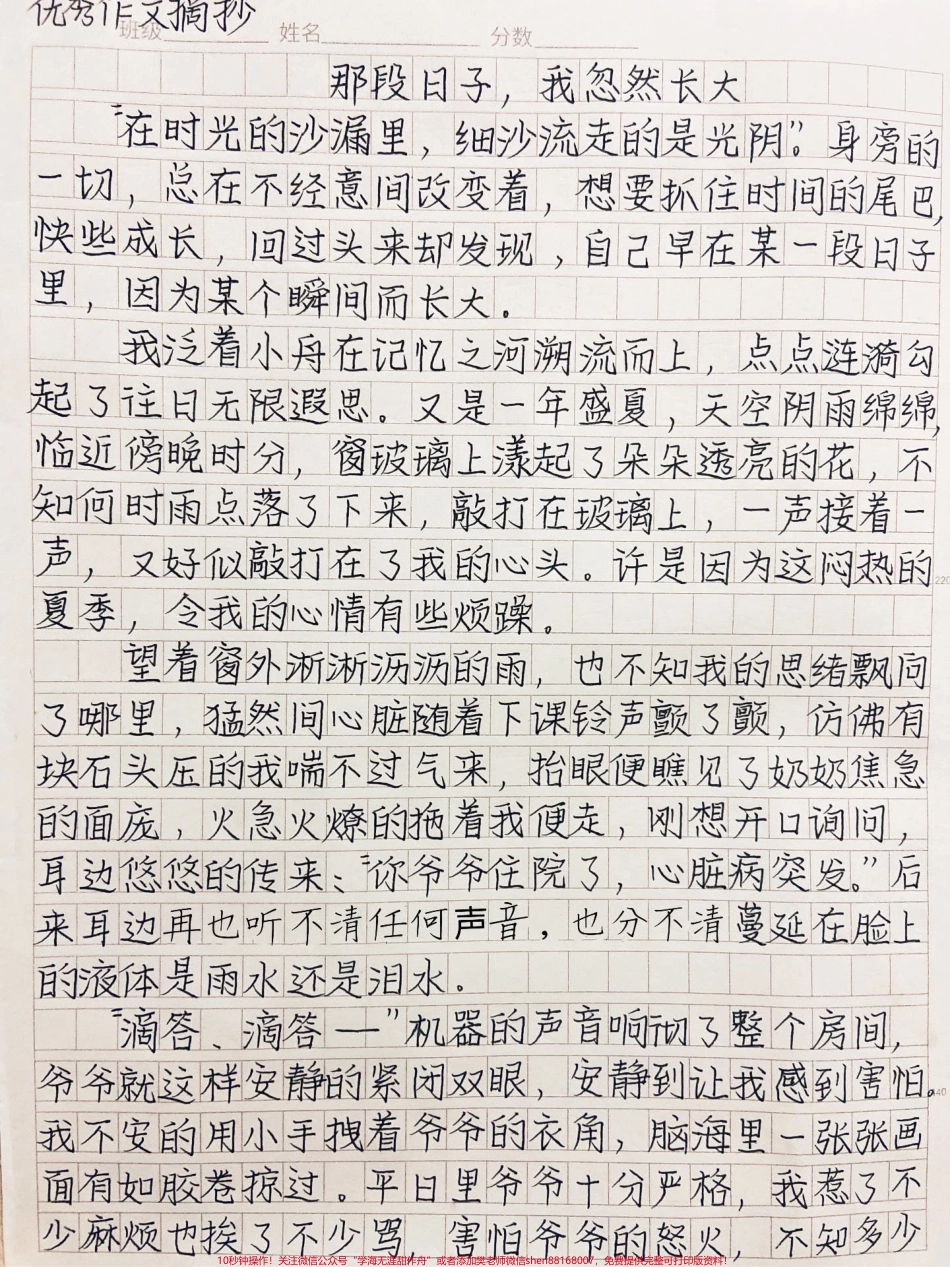 优秀作文摘抄
班级 姓名 分数
那段日子，我忽然长大
“在时光的沙漏里，细沙流走的是光阴”。身旁的
一切，总在不经意间改变着，想要抓住时间的尾巴，
快些成长，回过头来却发现，自己早在某一段日子
里，因为某个瞬间而长大。
我泛着小舟在记忆之河溯流而上，点点涟漪勾
起了往日无限遐思。又是一年盛夏，天空阴雨绵绵，
临近傍晚时分，窗玻璃上漾起了朵朵透亮的花，不
知何时雨点落了下来，敲打在玻璃上，一声接着一
声，又好似敲打在了我的心头。许是因为这闷热的
220
夏季，令我的心情有些烦躁。
望着窗外淅淅沥沥的雨，也不知我的思绪飘向
了哪里，猛然间心脏随着下课铃声颤了颤，仿佛有
块石头压的我喘不过气来，抬眼便瞧见了奶奶焦急
的面庞，火急火燎的拖着我便走，刚想开口询问，
耳边悠悠的传来：“你爷爷住院了，心脏病突发。”后
来耳边再也听不清任何声音，也分不清蔓延在脸上
的液体是雨水还是泪水。
“滴答、滴答—”机器的声音响彻了整个房间，
爷爷就这样安静的紧闭双眼，安静到让我感到害怕。
440
我不安的用小手拽着爷爷的衣角，脑海里一张张画
面有如胶卷掠过。平日里爷爷十分严格，我惹了不
少麻烦也挨了不少骂，害怕爷爷的怒火，不知多少
10秒钟操作！关注微信公众号“学海无涯甜作舟”或者添加樊老师微信shen88168007，免费提供完整可打印版资料！